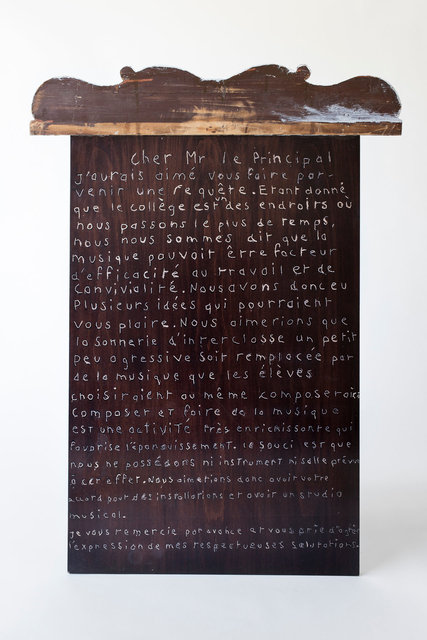 Cher Mr le Principal
j'aurais aimé vous faire par-
venir une requête. Etant donné
que le collège est un des endroits où
nous passons le plus de temps,
nous nous sommes dit que la
musique pouvait être facteur
d'efficacité au travail et de
convivialité. Nous avons donc eu
Plusieurs idées qui pourraient
vous plaire. Nous aimerions que
la sonnerie d'interclasse un petit
peu agressive soit remplacée par
de la musique que les élèves
choisiraient ou même composeraient
Composer et faire de la musique
est une activité très enrichissante qui
favorise l'épanouissement. le souci est que
nous ne possédons ni instrument ni salle prévue
à cet effet. Nous aimerions donc avoir votre
accord pour des installations et avoir un studio
musical.
je vous remercie par avance et vous prie d'agréer
l'expression de mes respectueuses salutations.